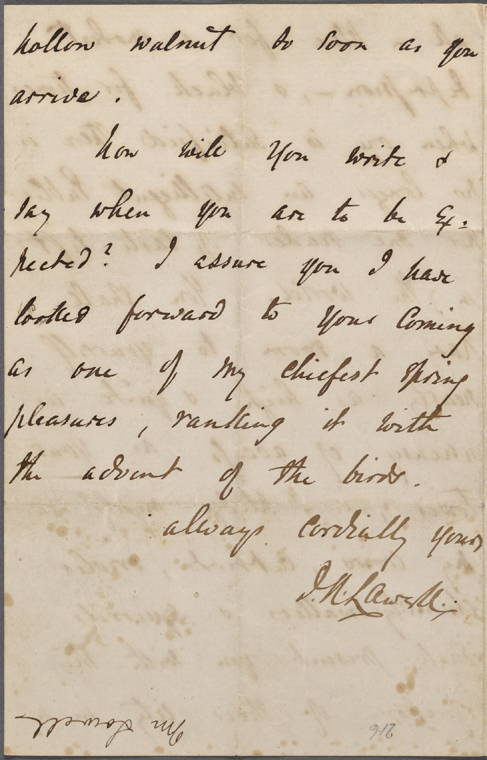 hollow walnut so soon as you
arrive.
Now will you write &
say when you are to be ex-
pected? I assure you I have
looked forward to your coming
as one of my chiefest spring
pleasures, ranking it with
the advent of the birds.
always cordially yours
J. R. Lowell.
Mr Lowell
216